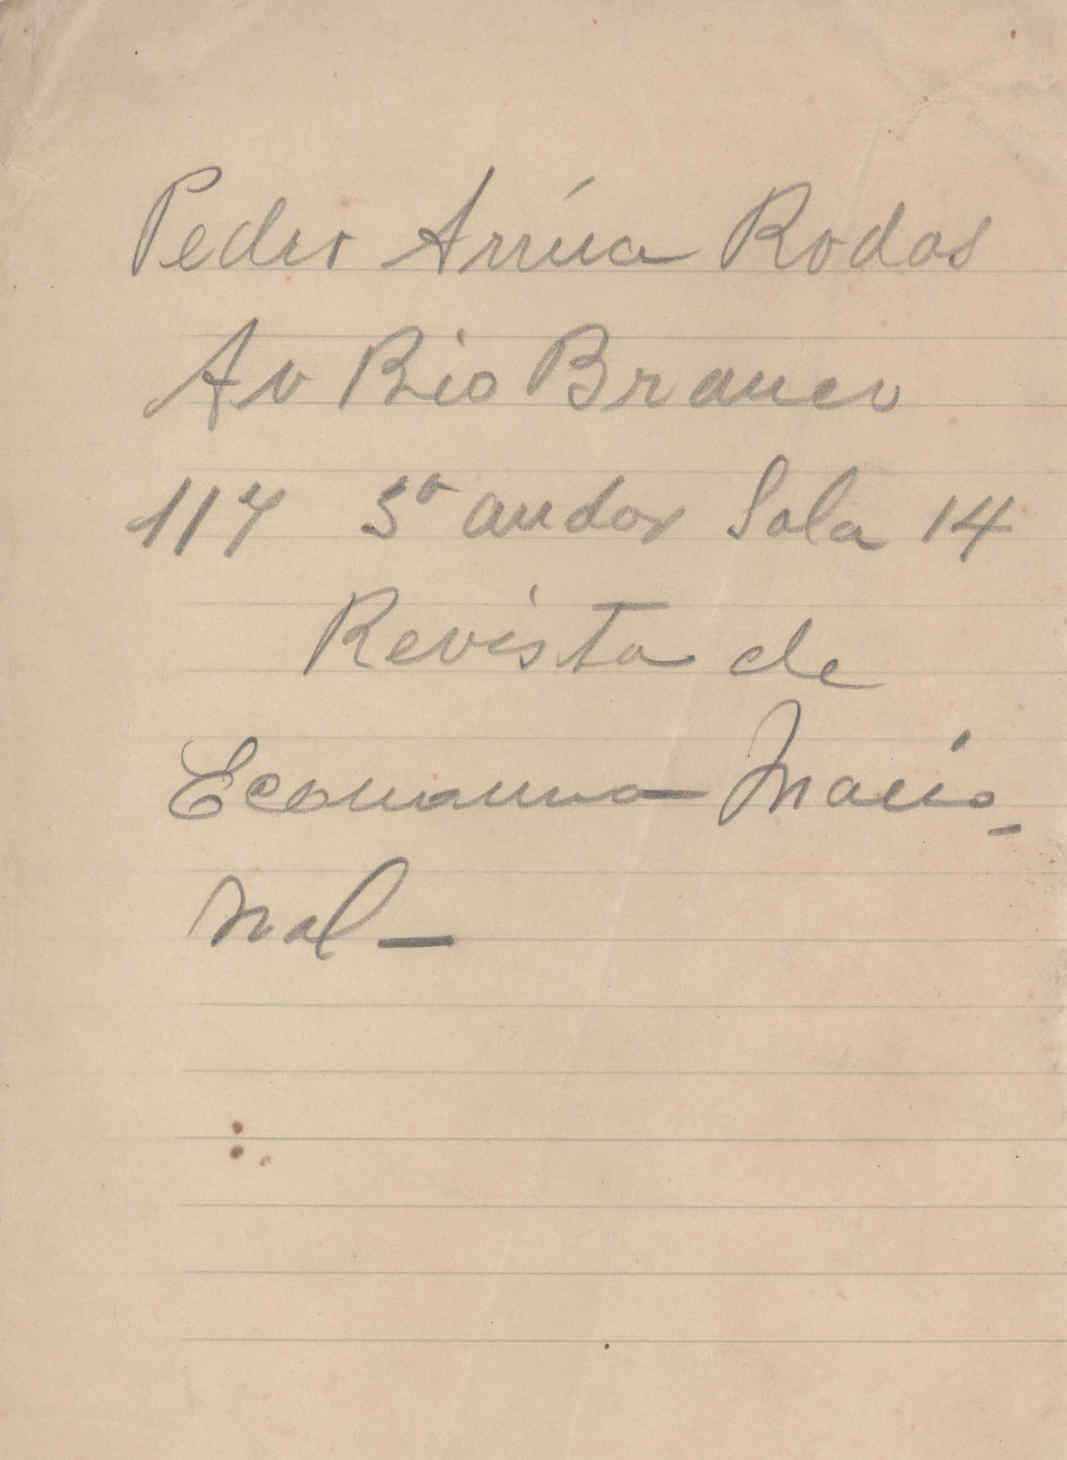 Pedro Arrúa Rodas
Av Rio Branco
117 3º andar Sala 14
Revista de
Economia Nacio-
nal-